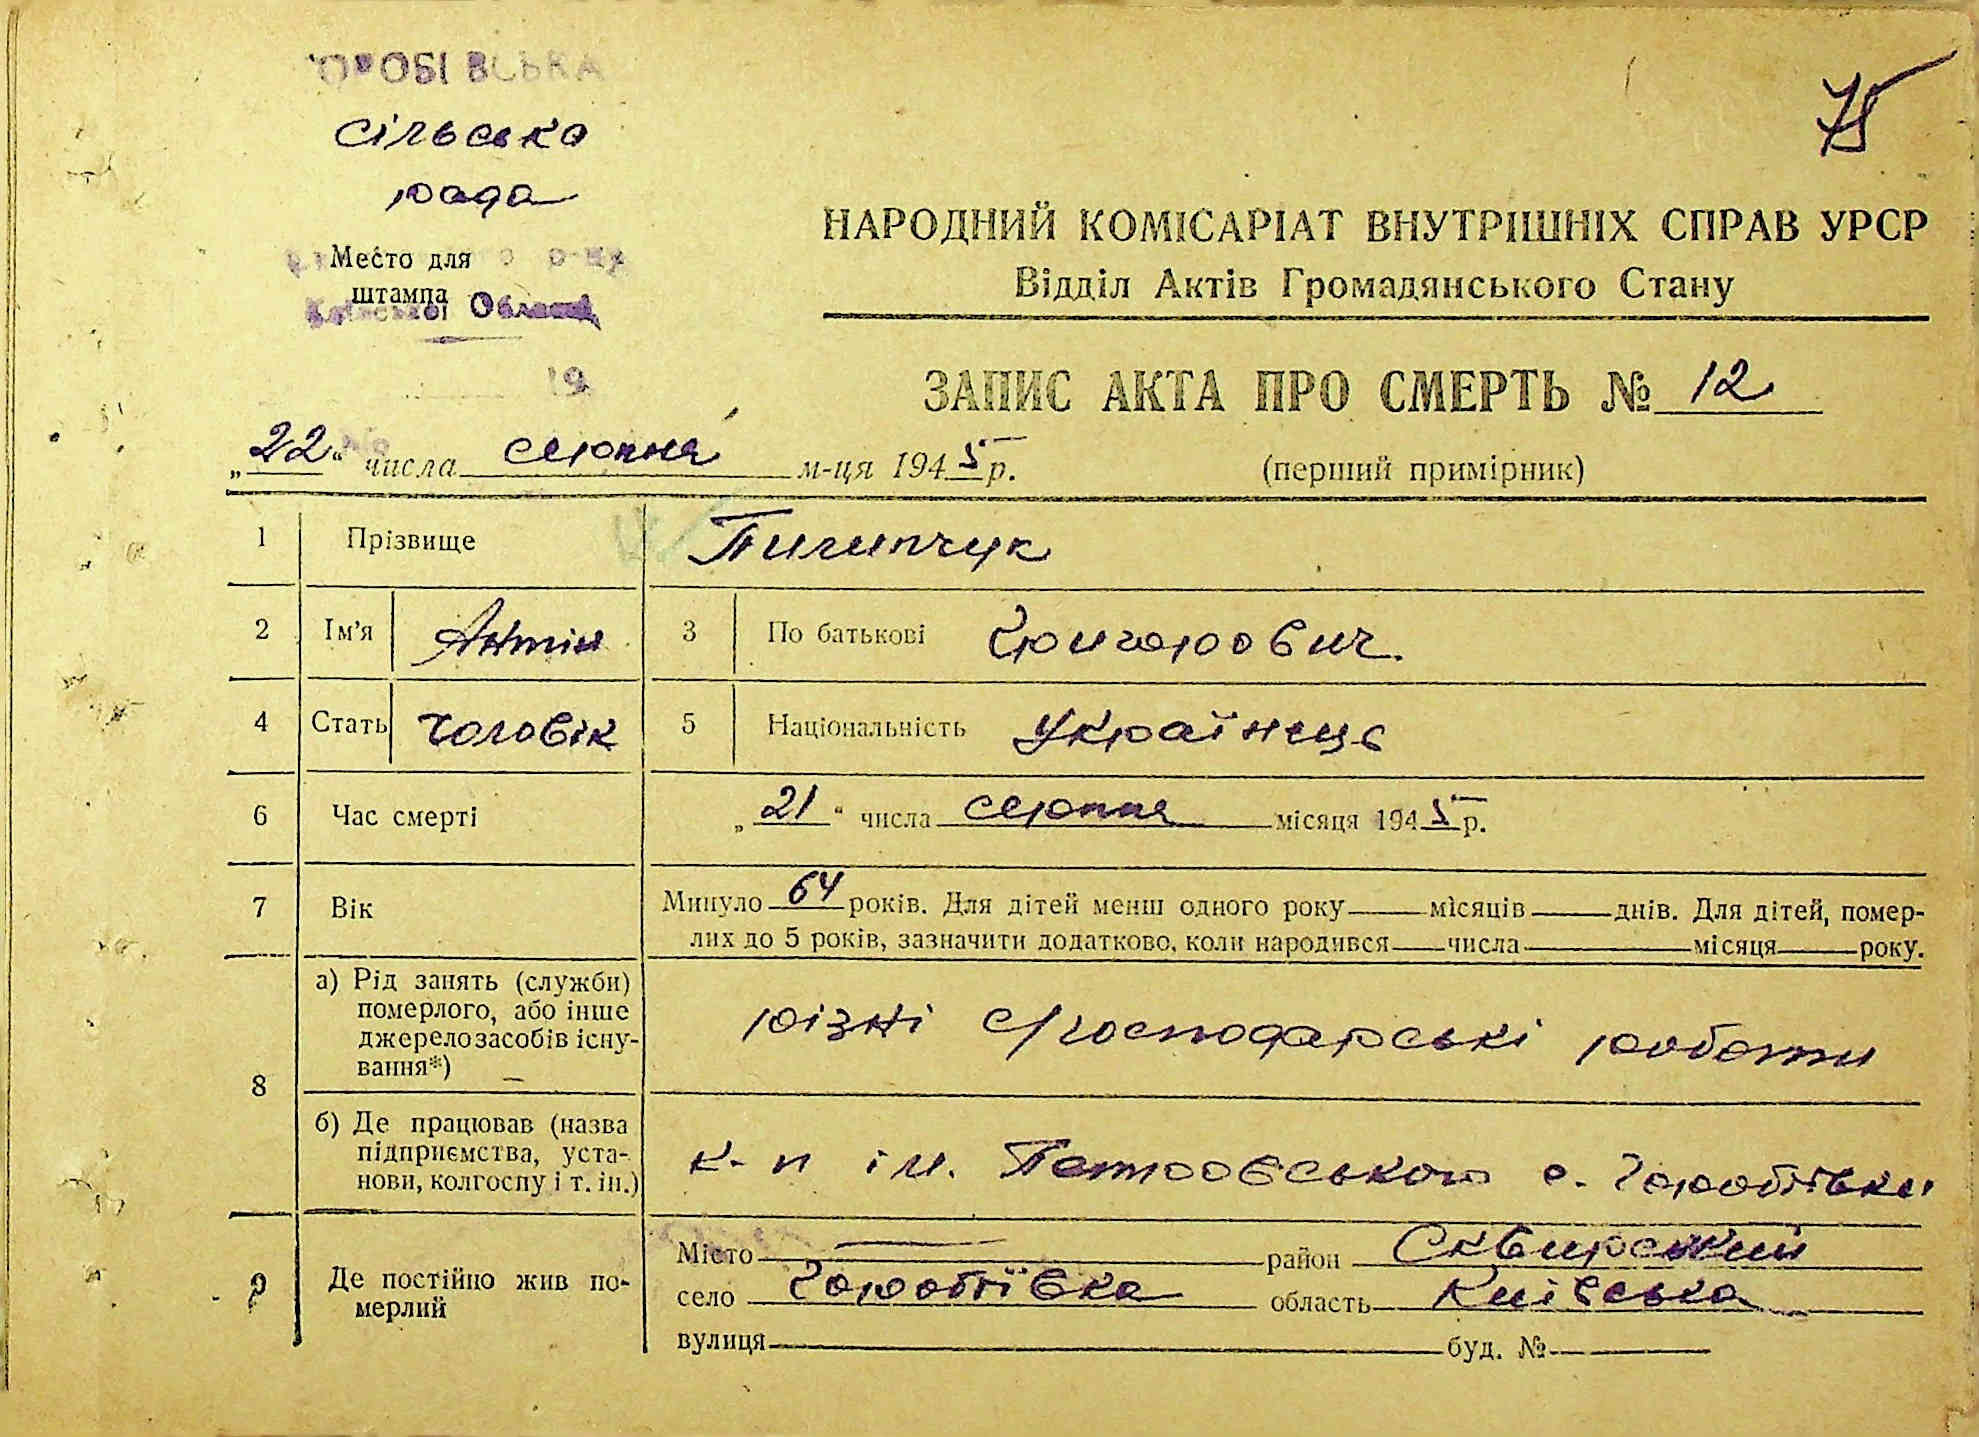 сільська
рада
Место для
штампа
Київської Області
19
75
НАРОДНИЙ КОМІСАРІАТ ВНУТРІШНІХ СПРАВ УРСР
Відділ Актів Громадянського Стану
ЗАПИС АКТА ПРО СМЕРТЬ № 12
„22“ числа серпня м-ця 1945 р.
(перший примірник)
1 Прізвище Пилипчук
2 Ім'я Антін 3 По батькові Григорович.
4 Стать чоловік 5 Національність Українець
6 Час смерті „21“ числа серпня місяця 1945 р.
7 Вік Минуло 64 років. Для дітей менш одного року місяців днів. Для дітей, помер-
лих до 5 років, зазначити додатково, коли народився числа місяця року.
8 а) Рід занять (служби)
померлого, або інше
джерело засобів існу-
вання*)
різні с/господарські роботи
б) Де працював (назва
підприємства, уста-
нови, колгоспу і т. ін.)
к-п ім. Петровського с. Горобіївки
9 Де постійно жив по-
мерлий
Місто — район Сквирський
село Горобіївка область Київська
вулиця буд. №